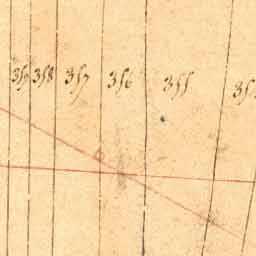 359 358 357 356 355